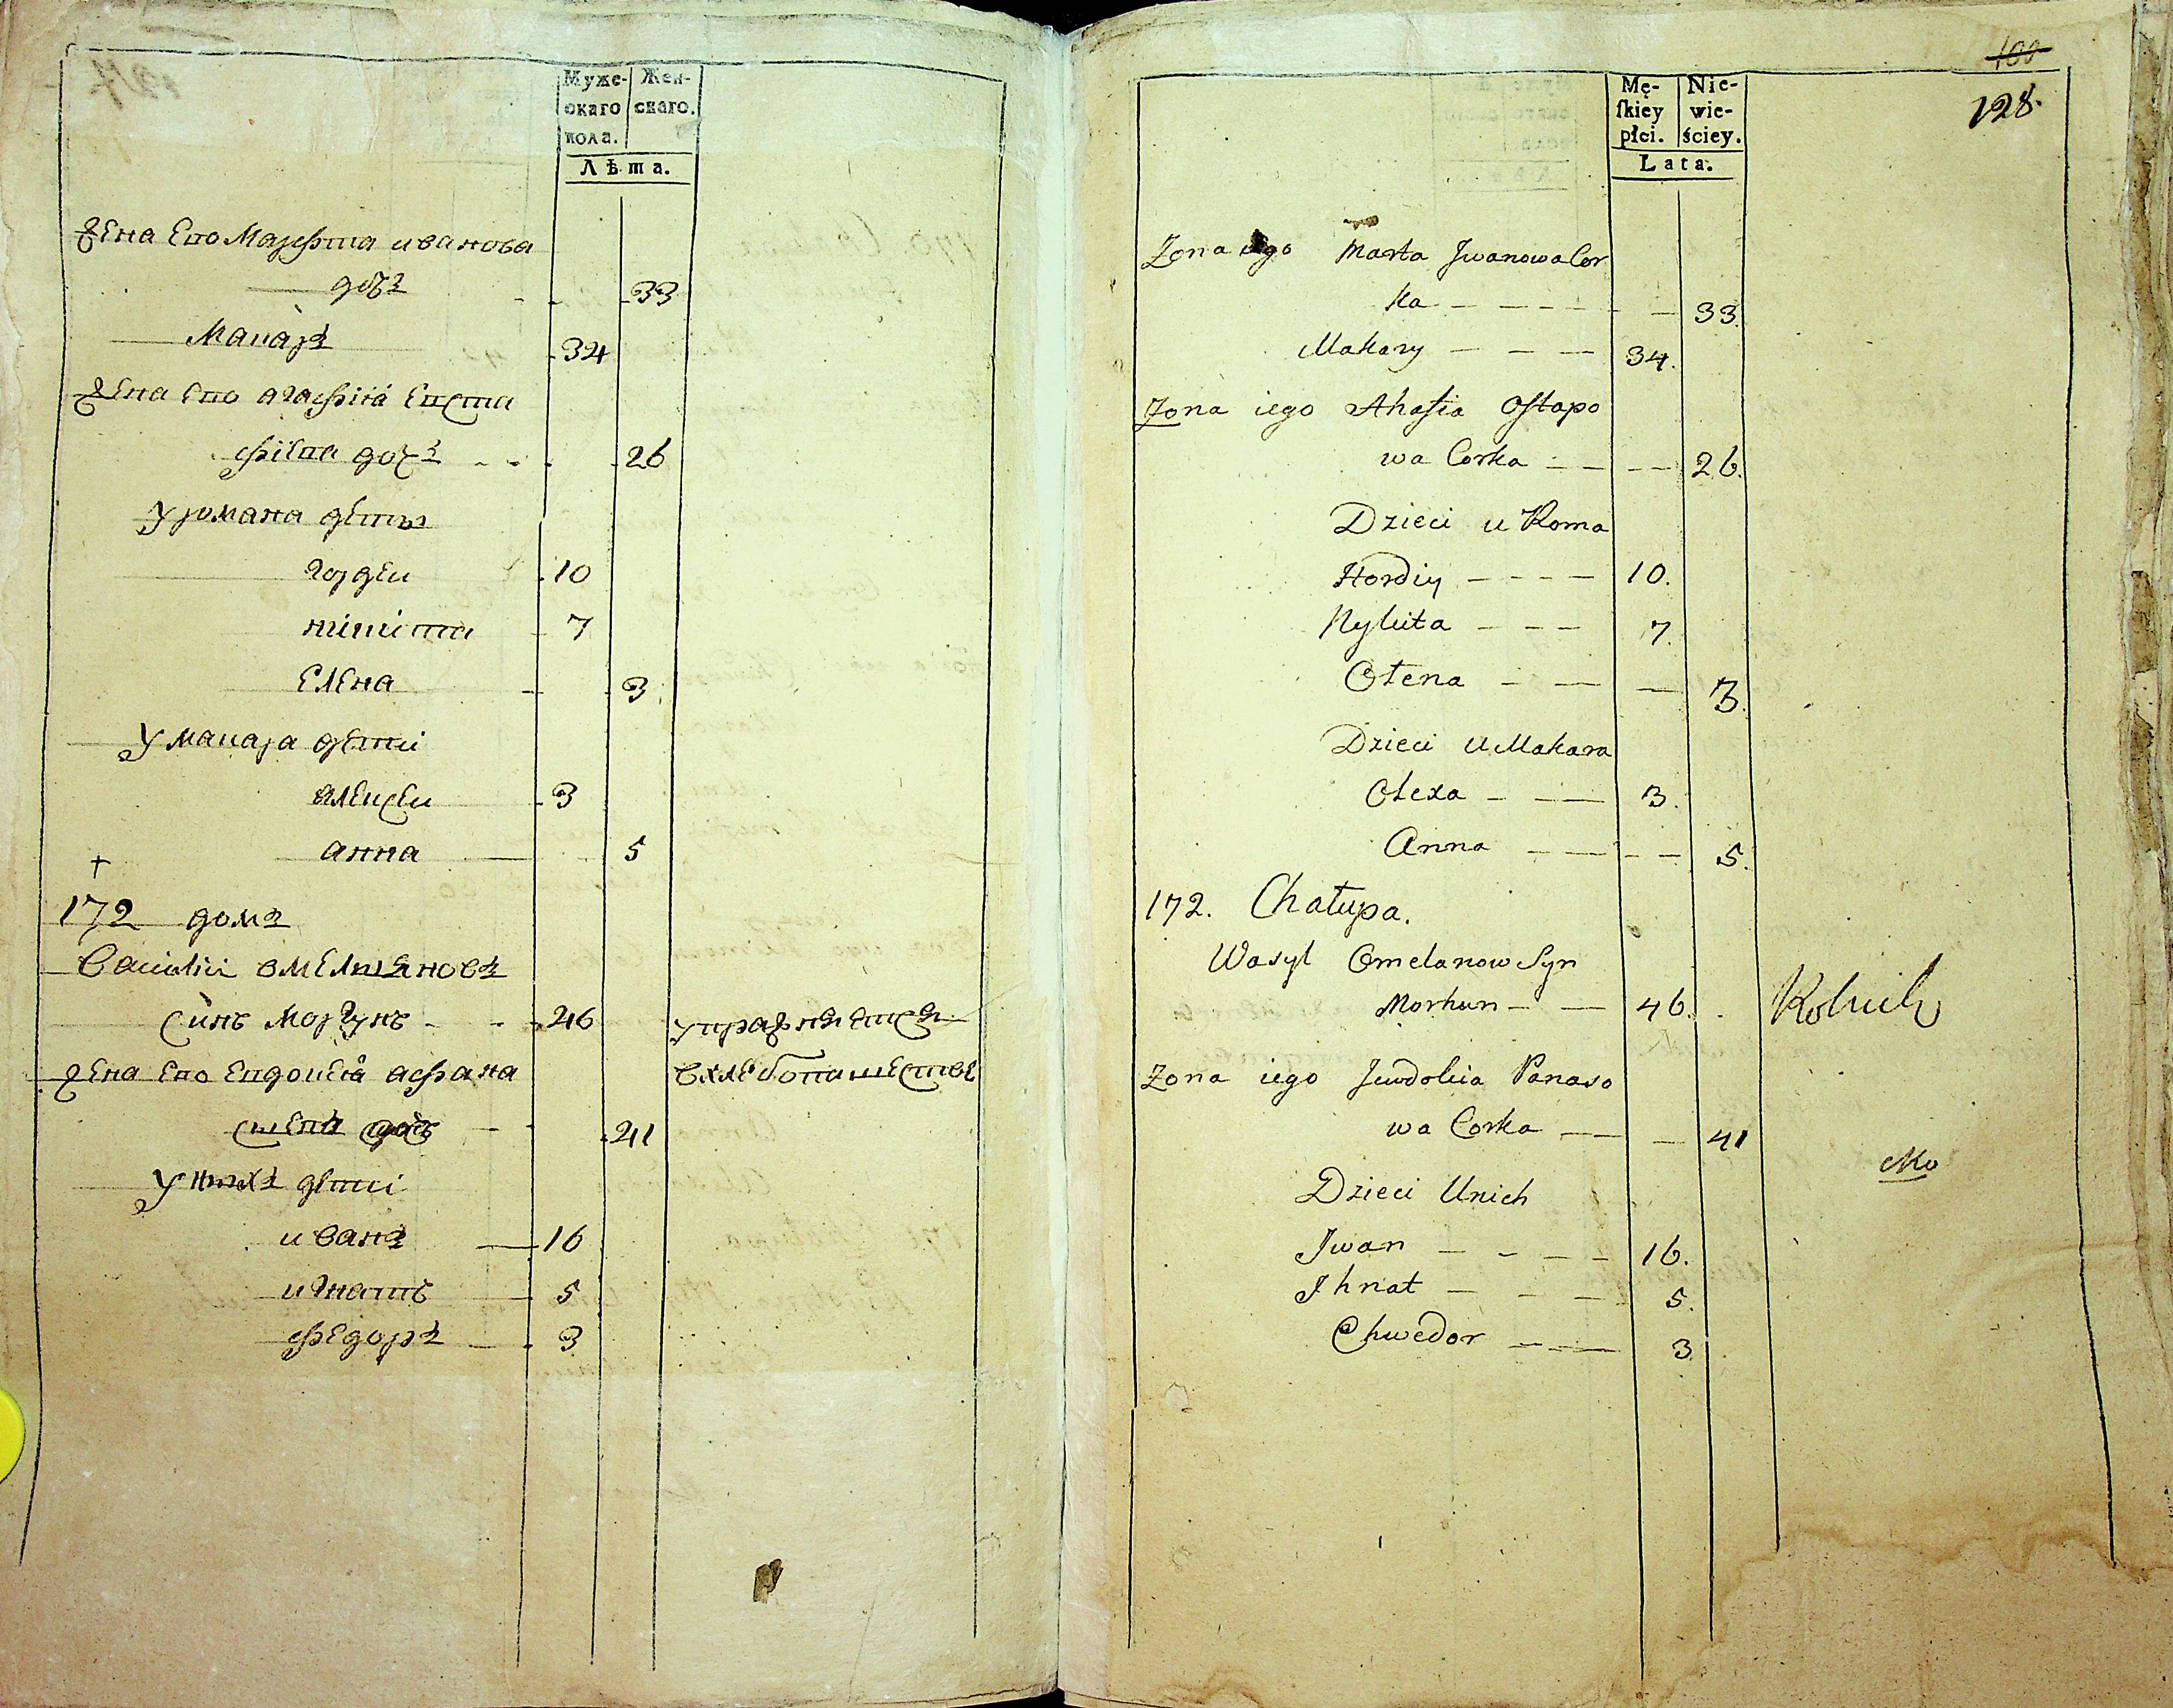 Муже- Жен-
скаго скаго.
пола.
Лѣта.
жена его Марфта иванова
дочъ 33
Макаръ 34
жена его агафия Евста
фиева дочъ 26
У романа дети
гордеи 10
никита 7
Елена 3
У макара дети
алексеи 3
анна 5
†
172 домъ
Василии омельяновъ
синъ Моргунъ 46 упражняется
жена его Евдокея афана в хлебопашестве
сиева дочъ 41
У нихъ дети
иванъ 16
игнатъ 5
федоръ 3
100
128.
Mę- Nie-
ſkiey wie-
płci. ściey.
Lata.
Zona iego Marta Jwanowa Cor
ka 33.
Makary 34.
Zona iego Ahafia Oſtapo
wa Corka 26.
Dzieci u Roma
Hordiy 10.
Nykita 7.
Ołena 3.
Dzieci u Makara
Ołexa 3.
Anna 5.
172. Chałupa.
Wasyl Omelanow Syn
Morhun 46. Rolnik
Zona iego Jewdokia Panaso
wa Corka 41
Dzieci Unich
Jwan 16.
Ihnat 5.
Chwedor 3